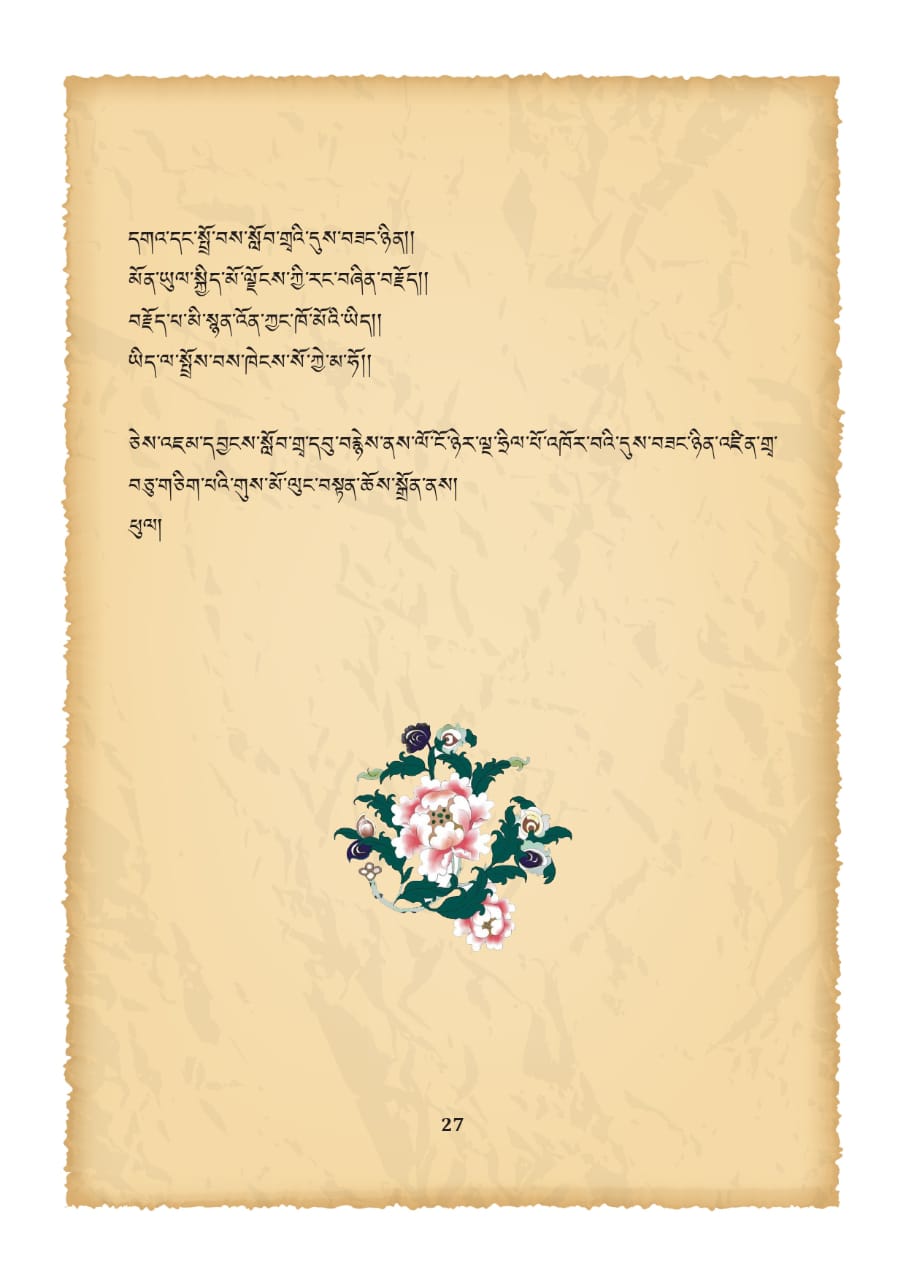 དགའ་དང་སྤྲོ་བས་སློབ་གྲྭའི་དུས་བཟང་ཉིན།།
མོན་ཡུལ་སྐྱིད་མོ་ལྗོངས་ཀྱི་རང་བཞིན་བརྗོད།།
བརྗོད་པ་མི་སྙན་འོན་ཀྱང་ཁོ་མོའི་ཡིད།།
ཡིད་ལ་སྤྲོས་བས་ཁེངས་སོ་ཀྱེ་མ་ཧོ།།
ཅེས་འཇམ་དབྱངས་སློབ་གྲྭ་དབུ་བརྙེས་ནས་ལོ་ངོ་ཉེར་ལྔ་ཧྲིལ་པོ་འཁོར་བའི་དུས་བཟང་ཉིན་འཛིན་གྲྭ་
བཅུ་གཅིག་པའི་གུས་མོ་ལུང་བསྟན་ཆོས་སྒྲོན་ནས།
ཕུལ།
27